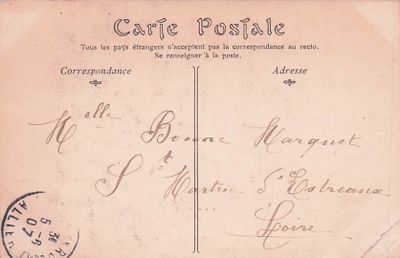 Carte Postale
Tous les pays étrangers n'acceptent pas la correspondance au recto.
Se renseigner à la poste.
Correspondance
Adresse
Melle Bonne Marquet
St Martin d'Estreaux
Loire
3E
5-8
07
ALLIER